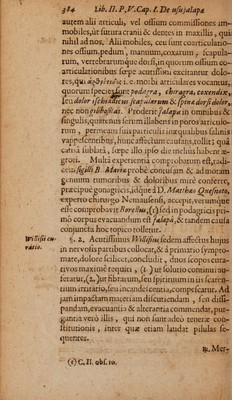 384 Lib. II. P. V. Cap. I. De usu jalapæ
autem alii articuli, vel ossium commissiones im-
mobiles, ut sutura cranii & dentes in maxillis, qui
nihil ad nos. Alii mobiles, ceu sunt coarticulatio-
nes ossium, pedum, manuum, coxarum, scapula-
rum, vertebrarumque dorsi, in quorum ossium co-
articulationibus sæpe acerissimi excitantur dolo-
res, qui i. e. morbi articulares vocantur,
quorum species sunt podagra, chiragra, coxendix,
seu dolor ischiadicus scapularum & spina dorsi dolor,
nec non Proderit jalapa in omnibus &
singulis, quin ejus serum illabens in poros articulo-
rum, permeans suis particulis inæqualibus salinis
rapescentibus, hunc affectum causans, tollit; quâ
causâ sublatâ, sæpe illo ipso die melius habent æ-
grori. Multa experientia comprobatum est, radi-
cem sigilli B. Mariæ probè contusam & admotam
genuum tumoribus & doloribus mirè conferre,
præcipuè gonagricis, idque à D. Matthæo Questorio,
experto chirurgo Nemausensi, accepit, verumque
est comprobavit Borellus, (c) sed in podagricis pri-
mò corpus evacuandum est jalapâ, & tandem caula
conjuncta hoc topico tolletur.
Willisii cu-
ratio.
§. 2. Acutissimus Willisius sedem affectus hujus
in nervosis partibus collocat, & à primario sympto-
mate, dolore scilicet, concludit, duos scopos cura-
tivos maximè requiri, (1.) ut solutio continui au-
feratur, (2.) ut fibrarum, seu spirituum in iis scaten-
tium irritatio, seu incandescentia, compescatur. Ad
jam impactam materiam discutiendam, seu dissi-
pandam, evacuantia & alterantia commendat, pur-
gantia verò illis, qui non sunt adeò teneræ con-
stitutionis, inter quæ etiam laudat pilulas se-
quentes.
♃. Mer-
(c) C. II. obs. 10.